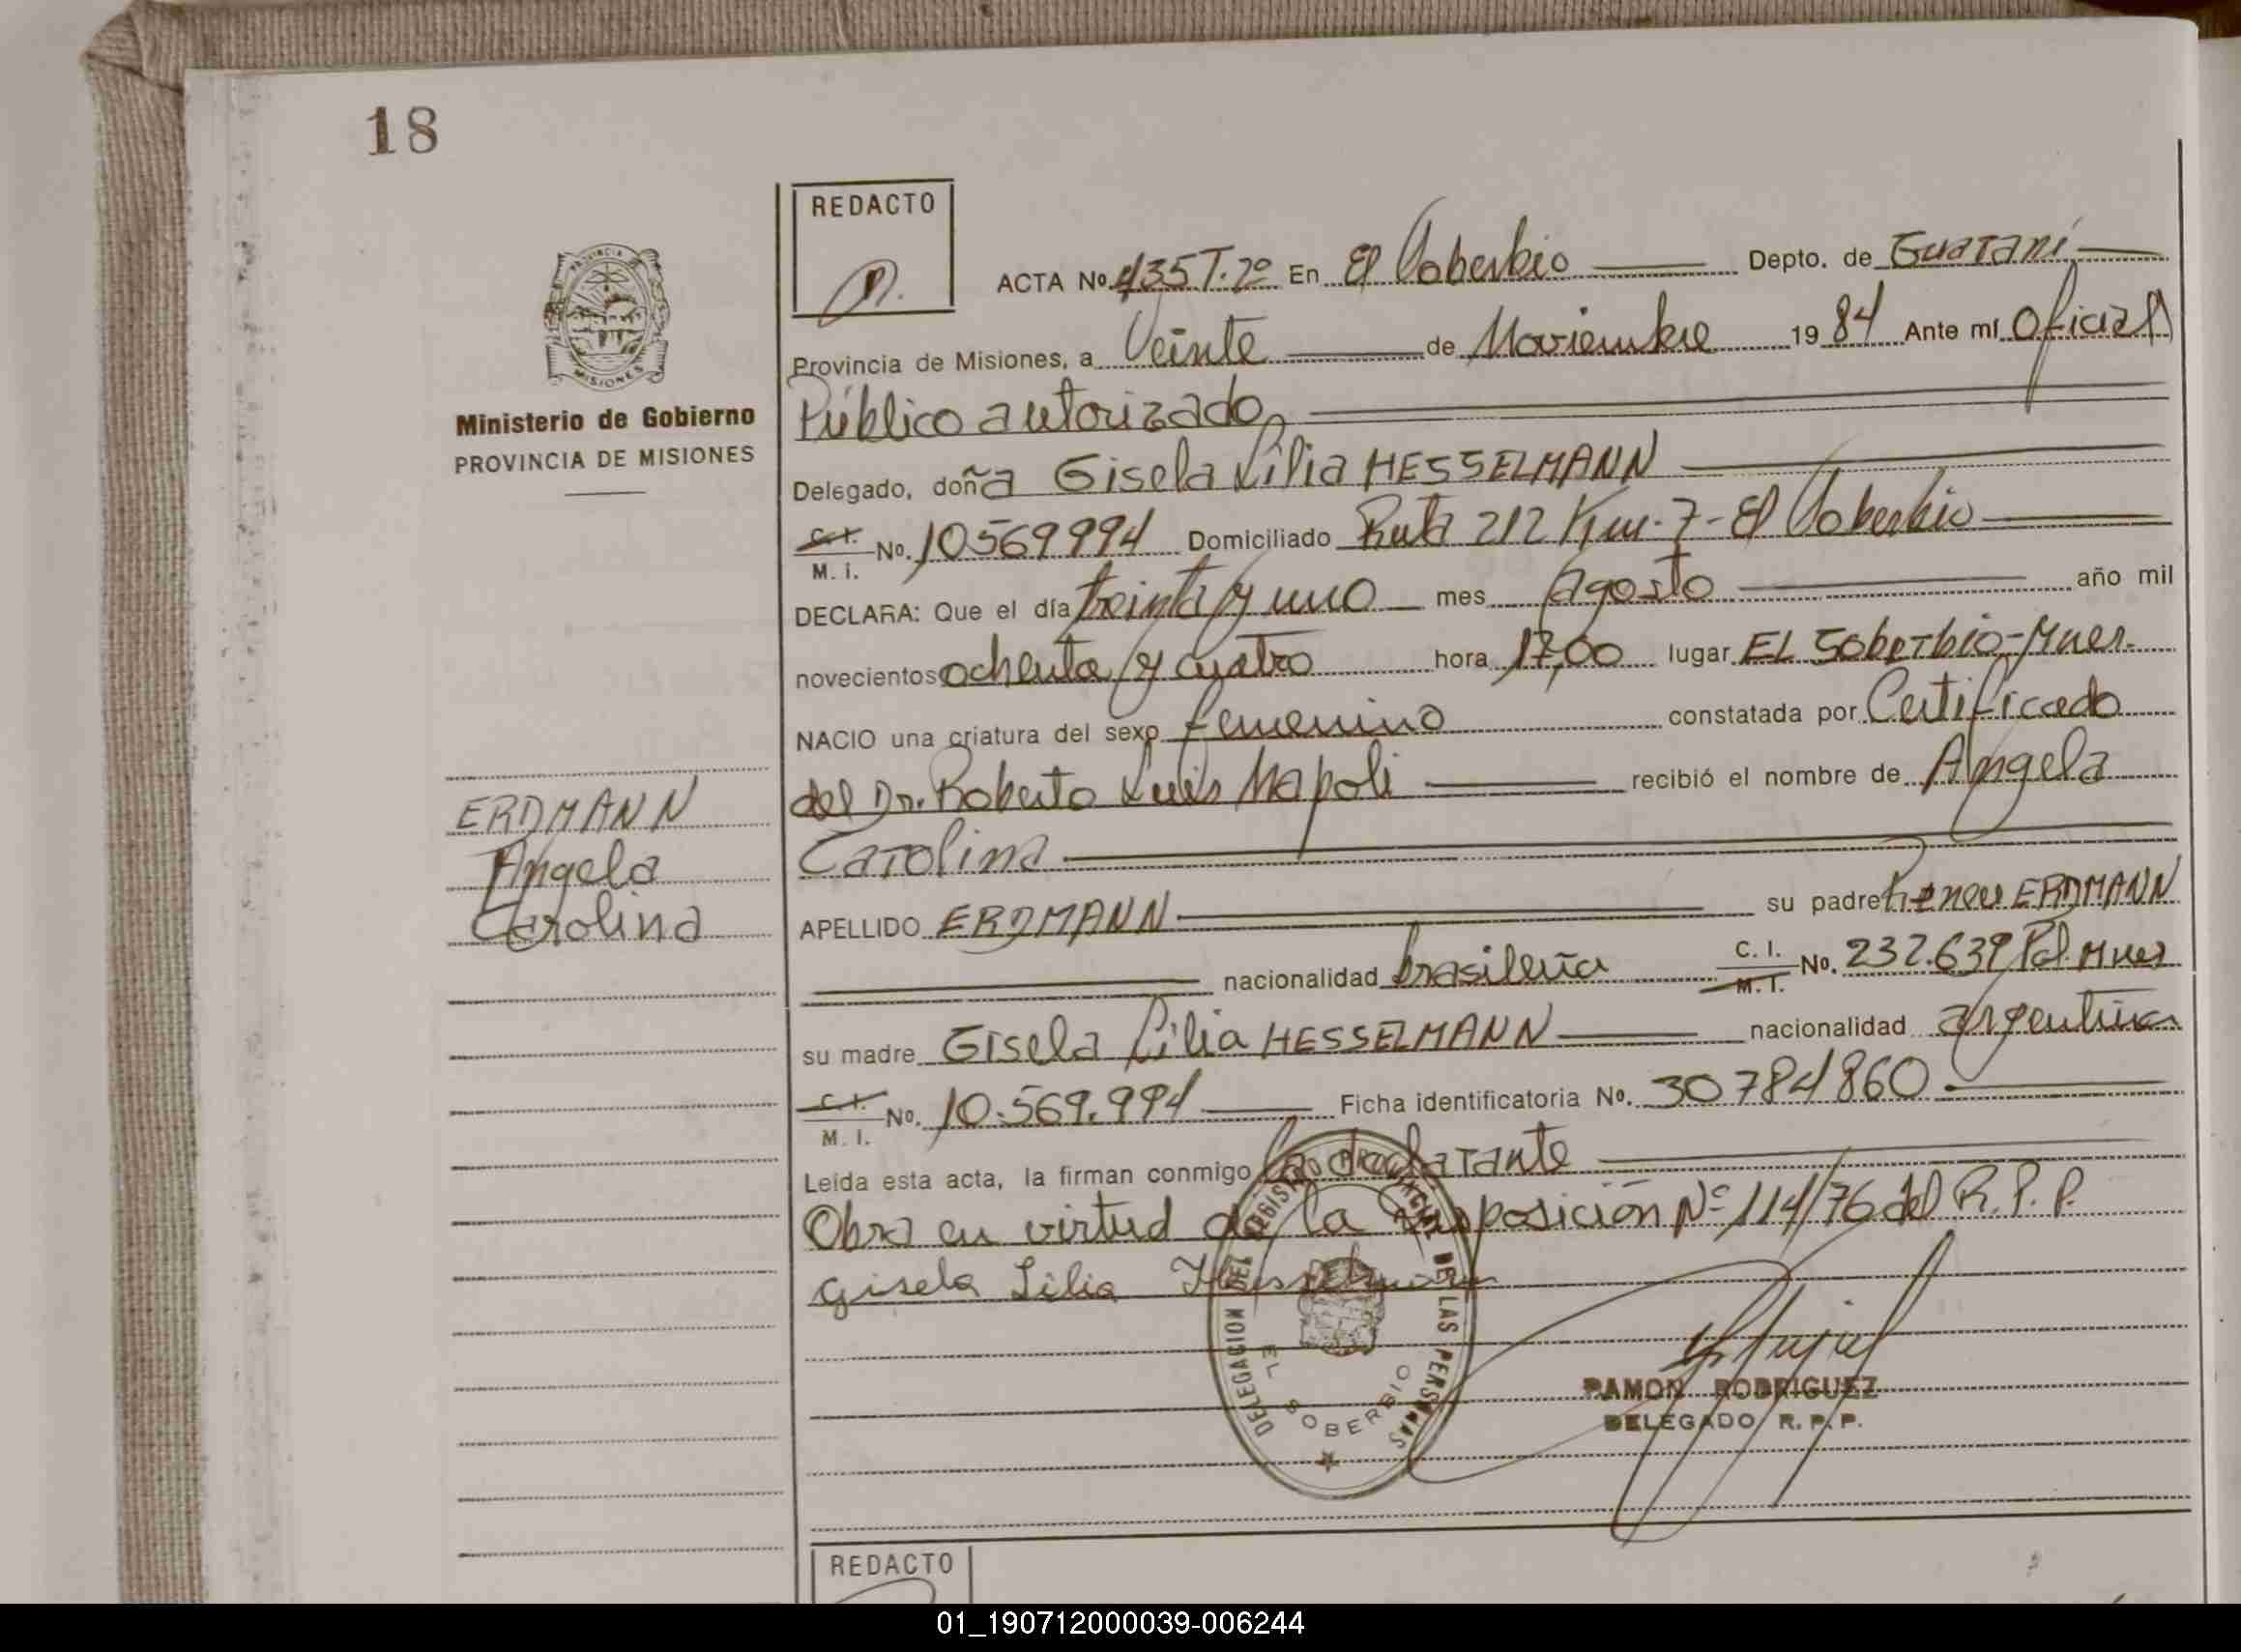 18
REDACTO
ACTA No. 435 T. 2º En El Soberbio Depto. de Guaraní
Provincia de Misiones, a Veinte de Noviembre 1984 Ante mí Oficial
PROVINCIA
MISIONES
Ministerio de Gobierno
PROVINCIA DE MISIONES
Público autorizado
Delegado, doña Gisela Lilia HESSELMANN
C. I. M. I. No. 10569994 Domiciliado Ruta 212 Km. 7 - El Soberbio
DECLARA: Que el día treinta y uno mes agosto año mil
novecientos ochenta y cuatro hora 17,00 lugar EL Soberbio - Mnes.
NACIO una criatura del sexo femenino constatada por Certificado
del Dr. Roberto Luis Napoli recibió el nombre de Angela
Carolina
ERDMANN
Angela
Carolina
APELLIDO ERDMANN su padre ERDMANN
nacionalidad brasileña C. I. M. I. No. 232.639 Pol. Mnes
su madre Gisela Lilia HESSELMANN nacionalidad argentina
C. I. M. I. No. 10.569.994 Ficha identificatoria No. 30784860
Leída esta acta, la firman conmigo la declarante
Obra en virtud de la Disposición Nº 114/76 del R. P. P.
Gisela Lilia Hesselmann
DELEGACION DEL REGISTRO PROVINCIAL DE LAS PERSONAS
EL SOBERBIO
RAMON RODRIGUEZ
DELEGADO R. P. P.
REDACTO
01_190712000039-006244